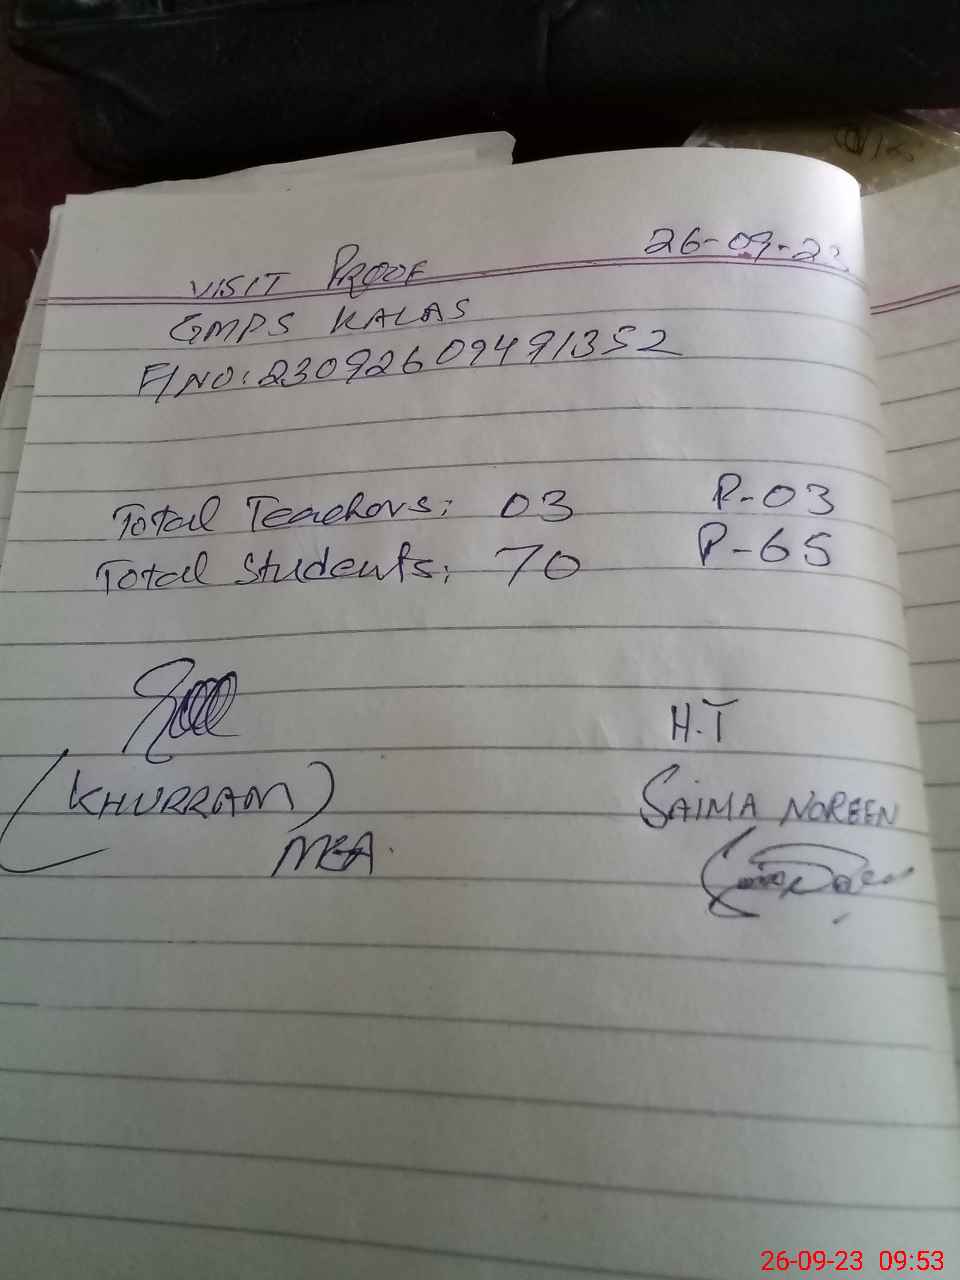 26-09-23
VISIT PROOF
GMPS KALAS
F/NO: 23092609491352
Total Teachers: 03 P-03
Total Students: 70 P-65
H.T
(KHURRAM) SAIMA NOREEN
MEA
26-09-23 09:53